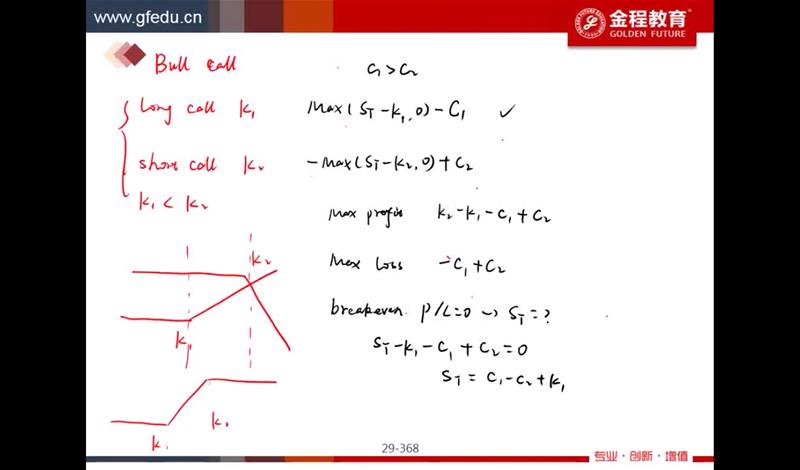 www.gfedu.cn
金程教育
GOLDEN FUTURE
Bull call
C1 > C2
long call K1 Max(ST-K1,0)-C1 ✓
short call K2 -Max(ST-K2,0)+C2
K1 < K2
Max profit K2-K1-C1+C2
Max Loss -C1+C2
breakeven P/L=0 → ST=?
ST-K1-C1+C2=0
ST = C1-C2+K1
K2
K1
K2
K1
29-368
专业·创新·增值